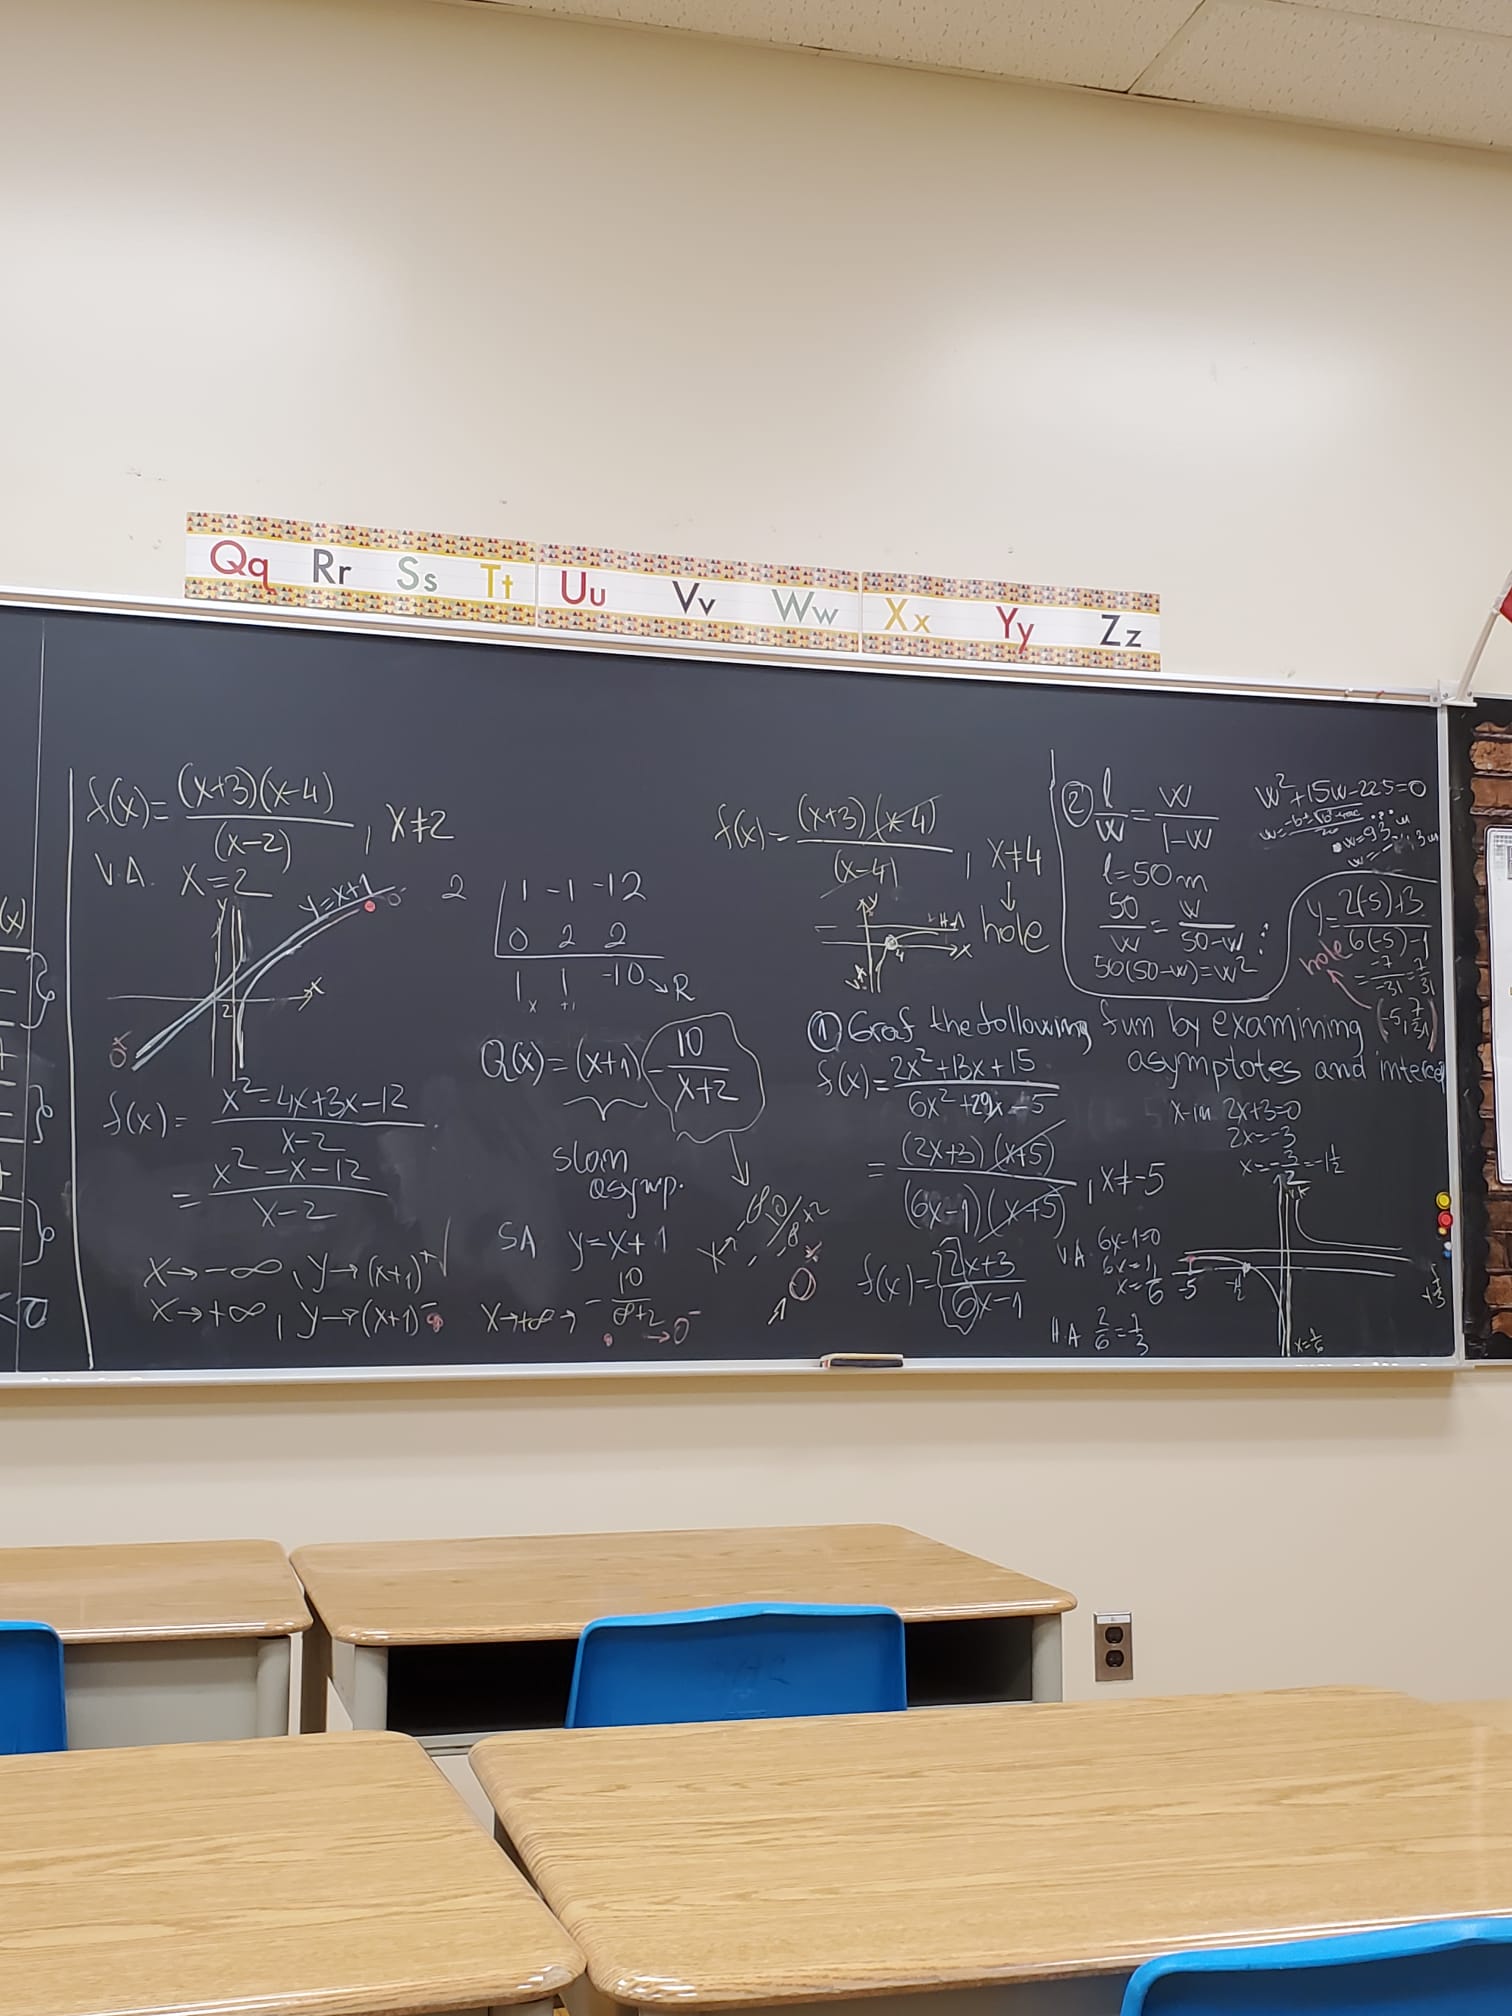 Qq Rr Ss Tt Uu Vv Ww Xx Yy Zz
f(x)= (x+3)(x-4) / (x-2) , x≠2
V.A. x=2
y=x+1
y
x
2
f(x)= x²-4x+3x-12 / x-2
= x²-x-12 / x-2
x→-∞, y→(x+1)⁺
x→+∞, y→(x+1)⁻
2 | 1 -1 -12
0 2 2
1 1 -10 → R
x +1
Q(x)=(x+1)- 10 / x+2
slan
asymp.
SA y=x+1
x→+∞→ - 10 / ∞+2 → 0⁻
f(x)= (x+3)(x-4) / (x-4) , x≠4
hole
y
H.A
x
4
V.A
② l / w = w / l-w
l=50m
50 / w = w / 50-w
50(50-w)=w²
w²+15w-225=0
y= 2(-5)+3 / 6(-5)-1
= -7 / -31 = 7 / 31
hole
(-5, 7/31)
① Graf the following fun by examining
asymptotes and interce
f(x)= 2x²+13x+15 / 6x²+29x-5
= (2x+3)(x+5) / (6x-1)(x+5) , x≠-5
f(x)= 2x+3 / 6x-1
x-in 2x+3=0
2x=-3
x=-3/2=-1½
V.A. 6x-1=0
6x=1
x=1/6
H.A 2/6=1/3
-5
x=1/6
(x)
<0